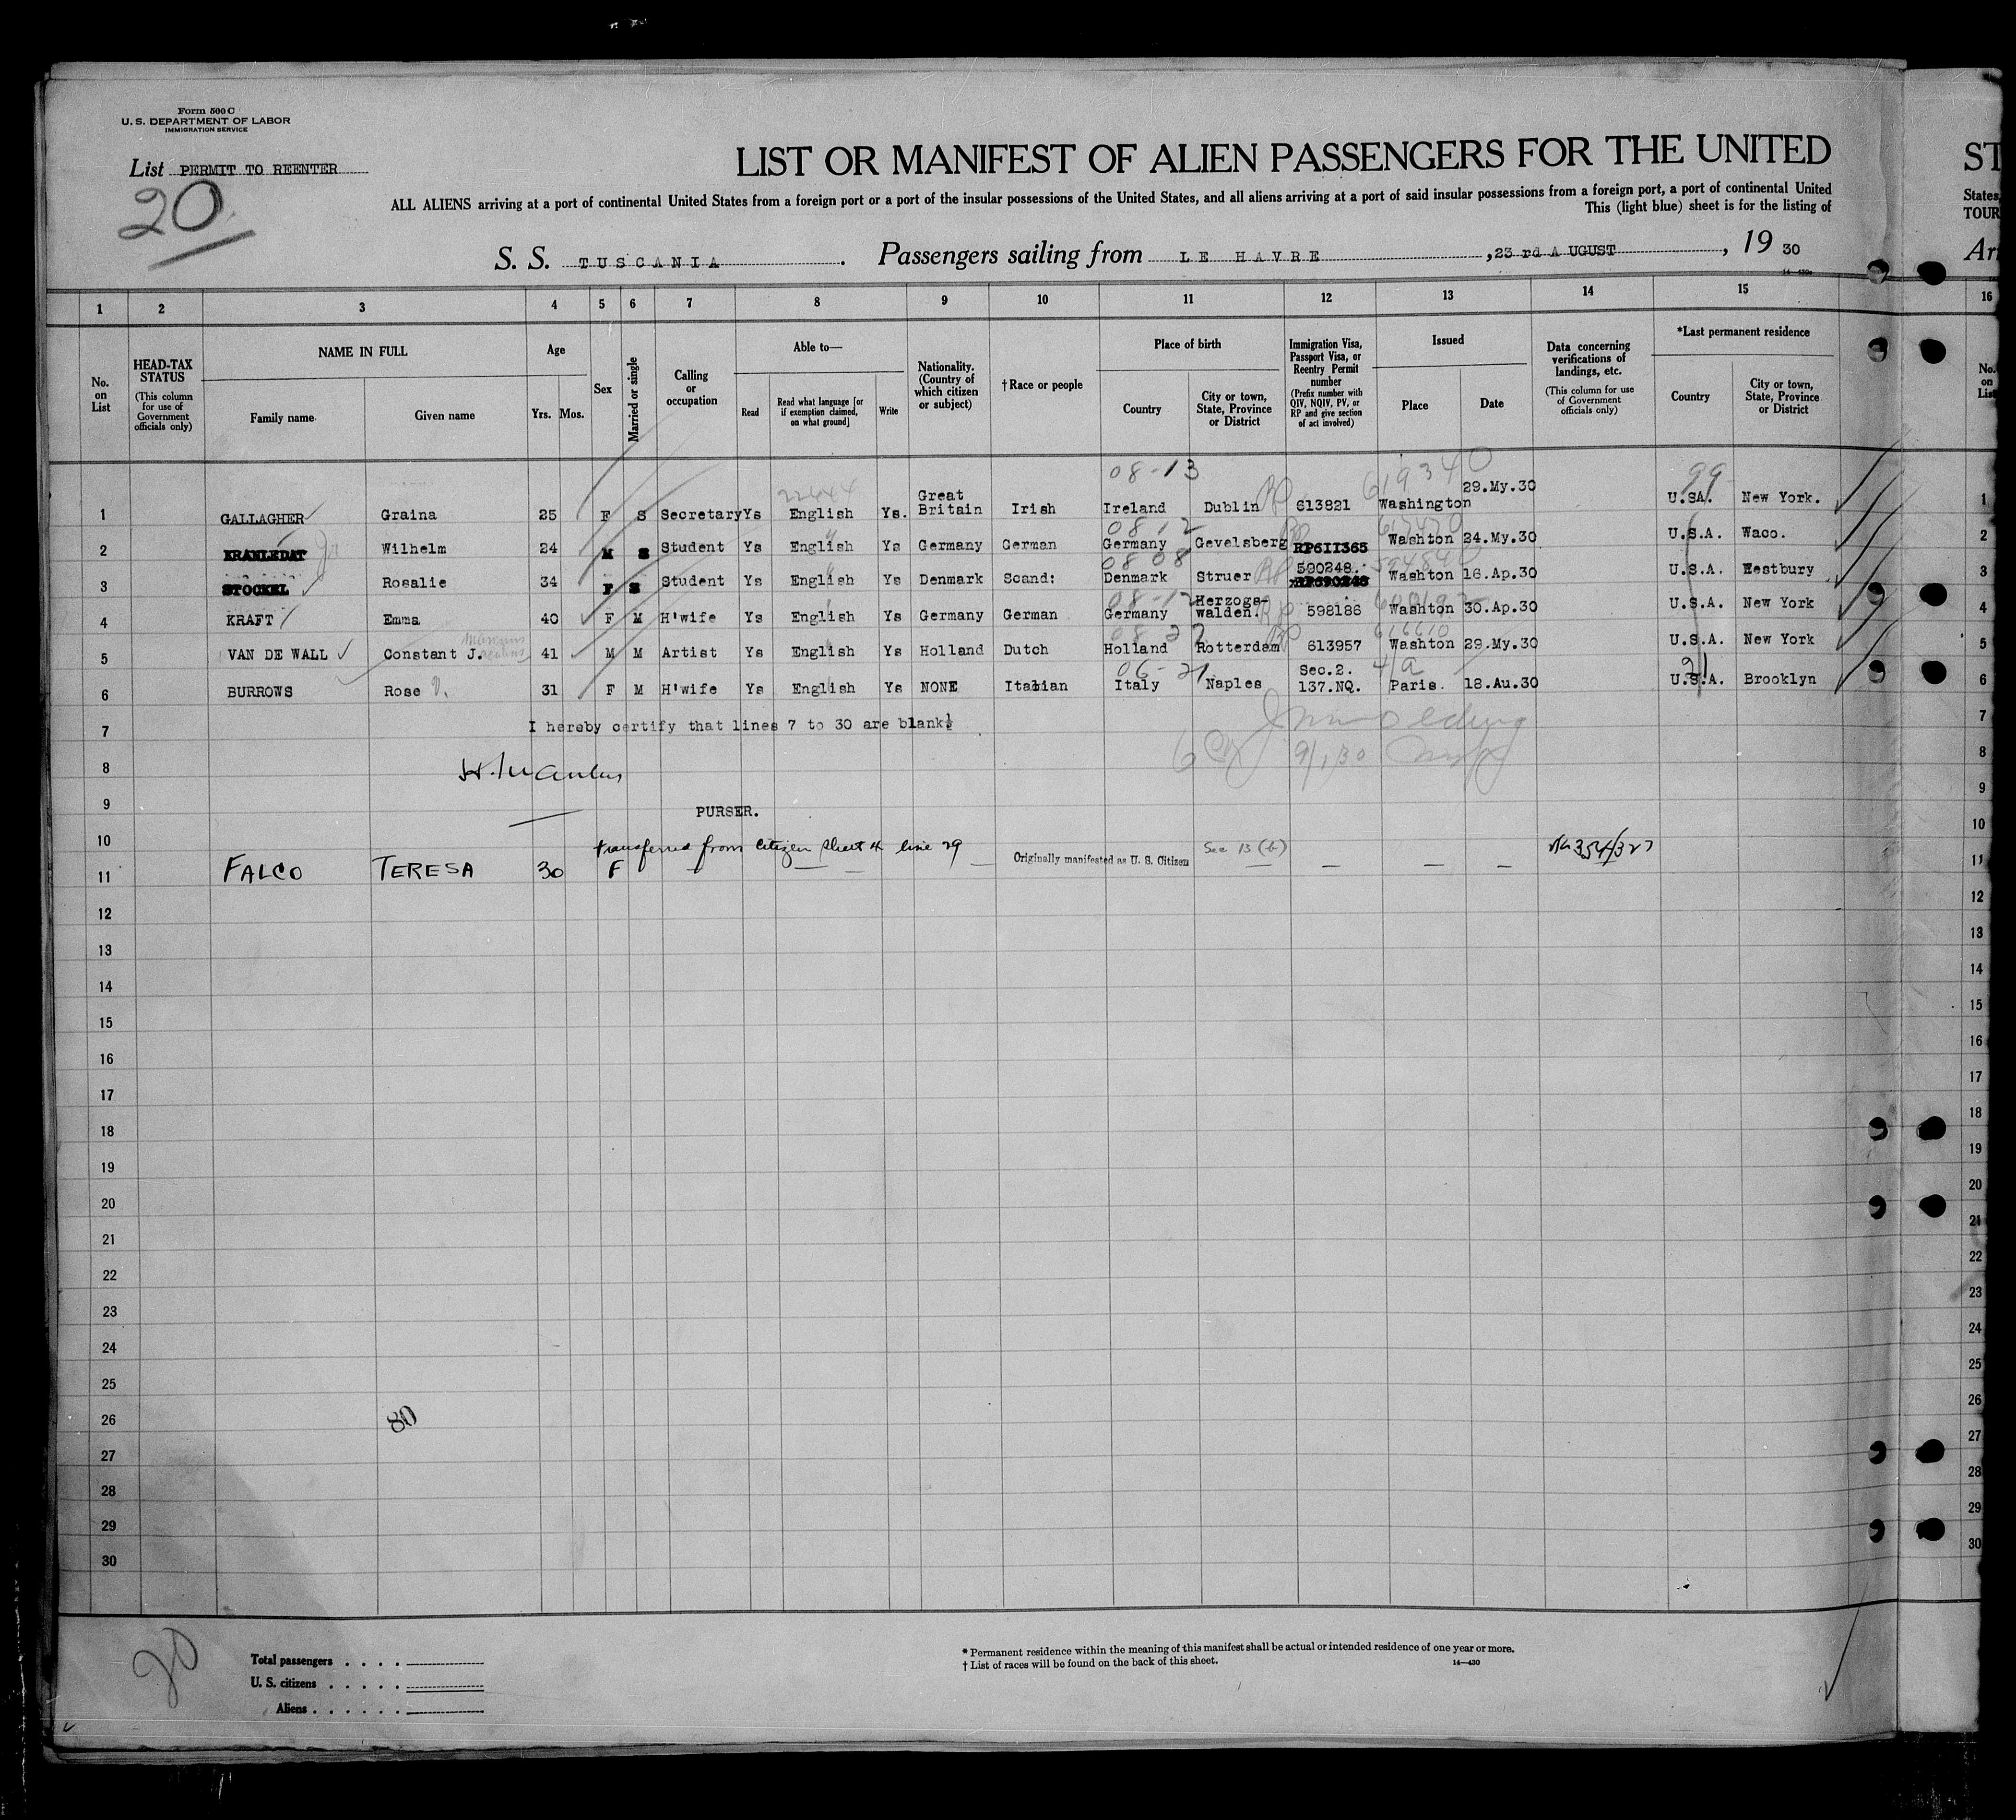 Form 500 C
U. S. DEPARTMENT OF LABOR
IMMIGRATION SERVICE
List PERMIT TO REENTER
20
LIST OR MANIFEST OF ALIEN PASSENGERS FOR THE UNITED
ST
ALL ALIENS arriving at a port of continental United States from a foreign port or a port of the insular possessions of the United States, and all aliens arriving at a port of said insular possessions from a foreign port, a port of continental United
States,
This (light blue) sheet is for the listing of
TOUR
S. S. TUSCANIA. Passengers sailing from LE HAVRE, 23 rd A UGUST, 19 30
Arr
1 2 3 4 5 6 7 8 9 10 11 12 13 14 15 16
No. on List
HEAD-TAX STATUS (This column for use of Government officials only)
NAME IN FULL Family name Given name
Age Yrs. Mos.
Sex
Married or single
Calling or occupation
Able to— Read Read what language [or if exemption claimed, on what ground] Write
Nationality. (Country of which citizen or subject)
† Race or people
Place of birth Country City or town, State, Province or District
Immigration Visa, Passport Visa, or Reentry Permit number (Prefix number with QIV, NQIV, PV, or RP and give section of act involved)
Issued Place Date
Data concerning verifications of landings, etc. (This column for use of Government officials only)
*Last permanent residence Country City or town, State, Province or District
No. on List
08-13 619340 99
1 GALLAGHER Graina 25 F S Secretary Ys English Ys. Great Britain Irish Ireland Dublin RP 613821 Washington 29.My.30 U.SA. New York. 1
08-12
2 KRAMLEDAT Wilhelm 24 M S Student Ys English Ys Germany German Germany Gevelsberg RP RP6II365 Washton 24.My.30 U.S.A. Waco. 2
08 08
3 STOCKEL Rosalie 34 F S Student Ys English Ys Denmark Scand: Denmark Struer RP 590248. Washton 16.Ap.30 U.S.A. Eestbury 3
08-12
4 KRAFT Emma 40 F M H'wife Ys English Ys Germany German Germany Herzogs-walden. RP 598186 Washton 30.Ap.30 U.S.A. New York 4
08 27
5 VAN DE WALL Constant J. 41 M M Artist Ys English Ys Holland Dutch Holland Rotterdam RP 613957 Washton 29.My.30 U.S.A. New York 5
06-21 4/a
6 BURROWS Rose V. 31 F M H'wife Ys English Ys NONE Italian Italy Naples Sec.2. 137.NQ. Paris. 18.Au.30 U.S.A. Brooklyn 6
7 I hereby certify that lines 7 to 30 are blank. 7
8 9/1/30 8
9 PURSER. 9
10 transferred from Citizen sheet 4 line 29 10
11 FALCO TERESA 30 F Originally manifested as U. S. Citizen Sec 13 (b) — — — 11
12 12
13 13
14 14
15 15
16 16
17 17
18 18
19 19
20 20
21 21
22 22
23 23
24 24
25 25
26 80 26
27 27
28 28
29 29
30 30
20
Total passengers
U. S. citizens
Aliens
* Permanent residence within the meaning of this manifest shall be actual or intended residence of one year or more.
† List of races will be found on the back of this sheet.
14—430